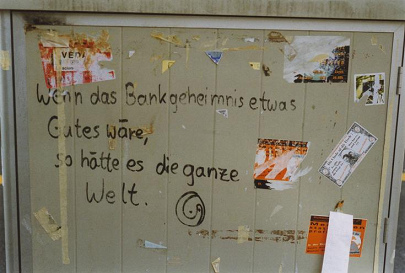 VEDI
Wenn das Bankgeheimnis etwas
Gutes wäre,
so hätte es die ganze
Welt.